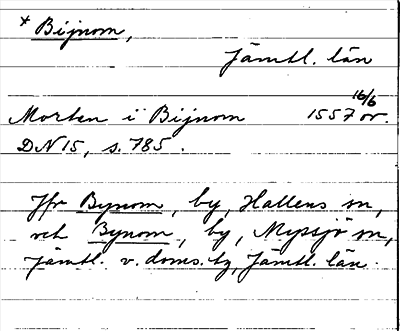 * Bijnom,
Jämtl. län
Morten i Bijnom 1557 16/6 or.
DN 15, s. 785.
Jfr Bynom, by, Hallens sn,
och Bynom, by, Myssjö sn,
Jämtl. v. doms.tg, Jämtl. län.